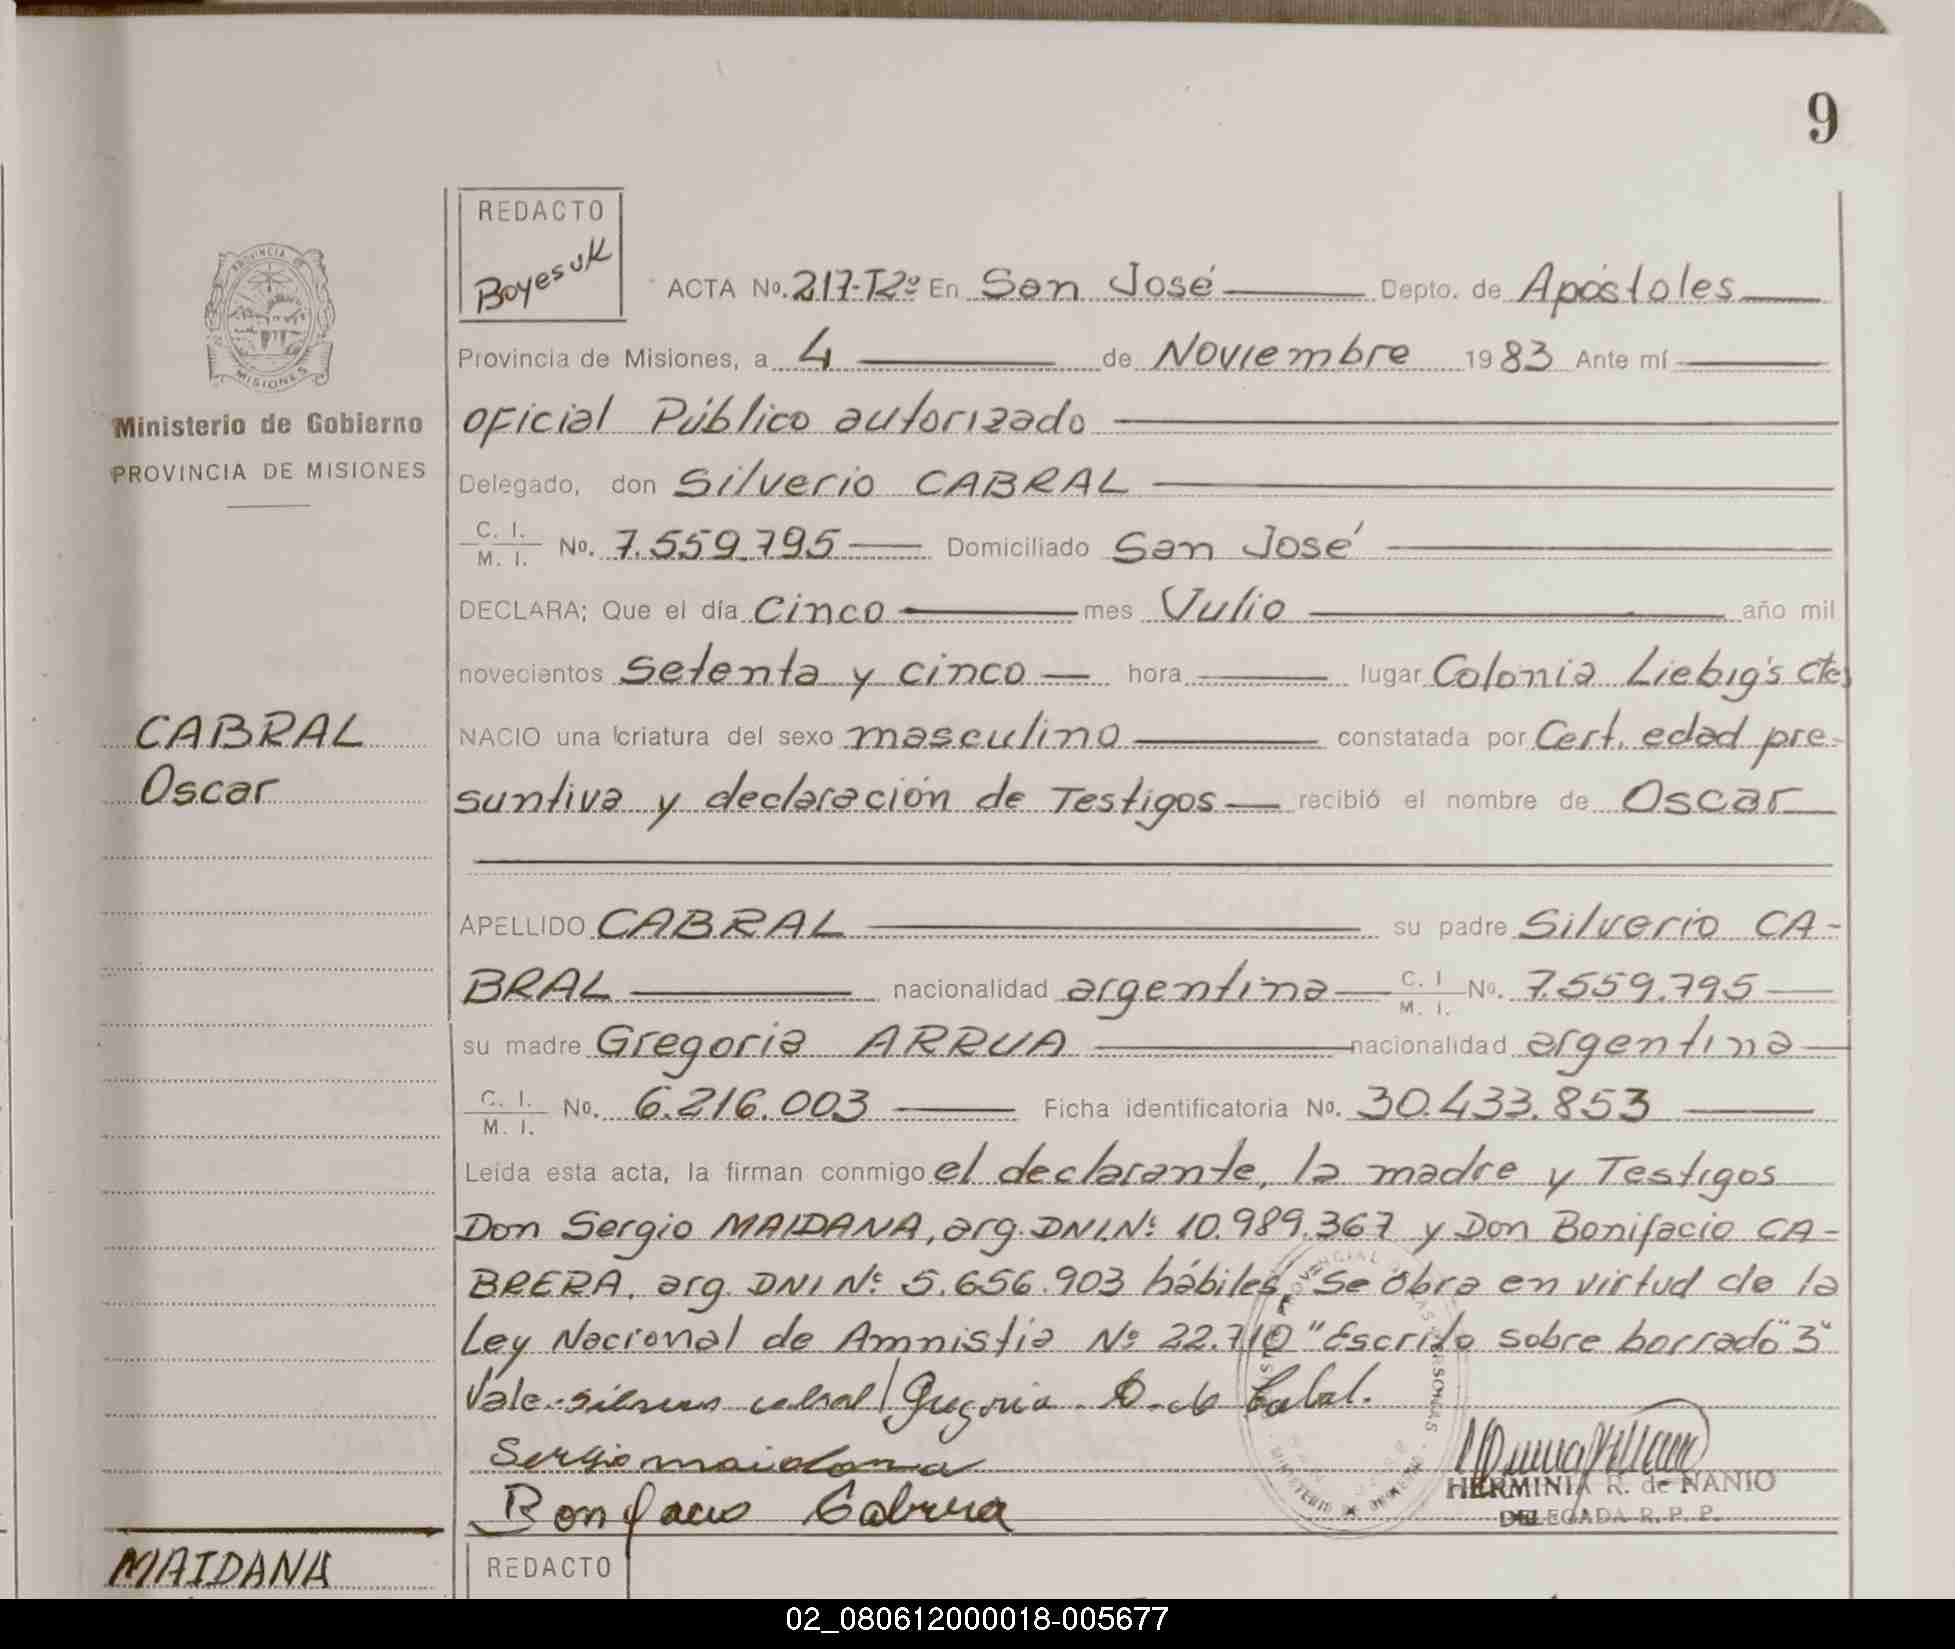 9
REDACTO
Boyesuk
ACTA No. 217-T2º En San José Depto. de Apóstoles
PROVINCIA DE
MISIONES
Provincia de Misiones, a 4 de Noviembre 1983 Ante mí
Ministerio de Gobierno
PROVINCIA DE MISIONES
oficial Público autorizado
Delegado, don Silverio CABRAL
C. I. / M. I. No. 7.559.795 Domiciliado San José
DECLARA; Que el día cinco mes Julio año mil
novecientos setenta y cinco hora lugar Colonia Liebig's Ctes
CABRAL
Oscar
NACIO una criatura del sexo masculino constatada por Cert. edad pre-
suntiva y declaración de Testigos recibió el nombre de Oscar
APELLIDO CABRAL su padre Silverio CA-
BRAL nacionalidad argentina C. I / M. I. No. 7.559.795
su madre Gregoria ARRUA nacionalidad argentina
C. I. / M. I. No. 6.216.003 Ficha identificatoria No. 30.433.853
Leída esta acta, la firman conmigo el declarante, la madre y Testigos
Don Sergio MAIDANA, arg. DNI.Nº 10.989.367 y Don Bonifacio CA-
BRERA. arg. DNI Nº 5.656.903 hábiles, Se obra en virtud de la
Ley Nacional de Amnistia Nº 22.710 "Escrito sobre borrado "3"
Vale. silverio cabral / Gregoria de Cabral.
Sergio maidana
Bonifacio Cabrera
HERMINIA R. de NANIO
DELEGADA R. P. P.
MAIDANA
REDACTO
02_080612000018-005677